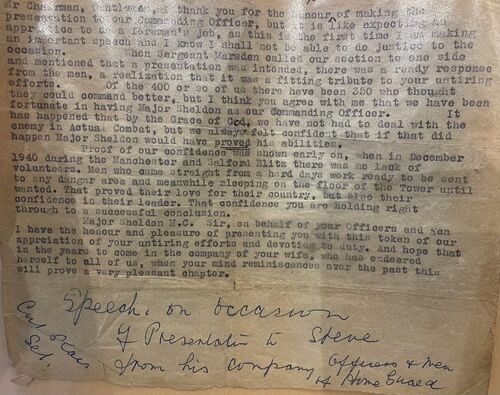 r Chairman, Gentlemen, I thank you for the honour of making the
presentation to our Commanding Officer, but it is like expecting an
apprentice to do a foreman's job, as this is the first time I am making
an important speech and I know I shall not be able to do justice to the
occasion. When Sergeant Marsden called our section to one side
and mentioned that a presentation was intended, there was a ready response
from the men, a realization that it was a fitting tribute to your untiring
efforts. Of the 400 or so of us there have been 350 who thought
they could command better, but I think you agree with me that we have been
fortunate in having Major Sheldon as our Commanding Officer. It
has happened that by the Grace of God, we have not had to deal with the
enemy in Actual Combat, but we always felt confident that if that did
happen Major Sheldon would have proved his abilities.
Proof of our confidence was shown early on, when in December
1940 during the Manchester and Salford Blitz there was no lack of
volunteers. Men who came straight from a hard days work ready to be sent
to any danger area and meanwhile sleeping on the floor of the Tower until
wanted. That proved their love for their country, but also their
confidence in their leader. That confidence you are holding right
through to a successful conclusion.
Major Sheldon M.C. Sir, on behalf of your Officers and Men
I have the honour and pleasure of presenting you with this token of our
appreciation of your untiring efforts and devotion to duty. And hope that
in the years to come in the company of your wife, who has endeered
herself to all of us, when your mind reminiscences over the past this
will prove a very pleasant chapter.
Speech, on occasion
of Presentation to Steve
from his company Officers & men
of Home Guard
Sgt.